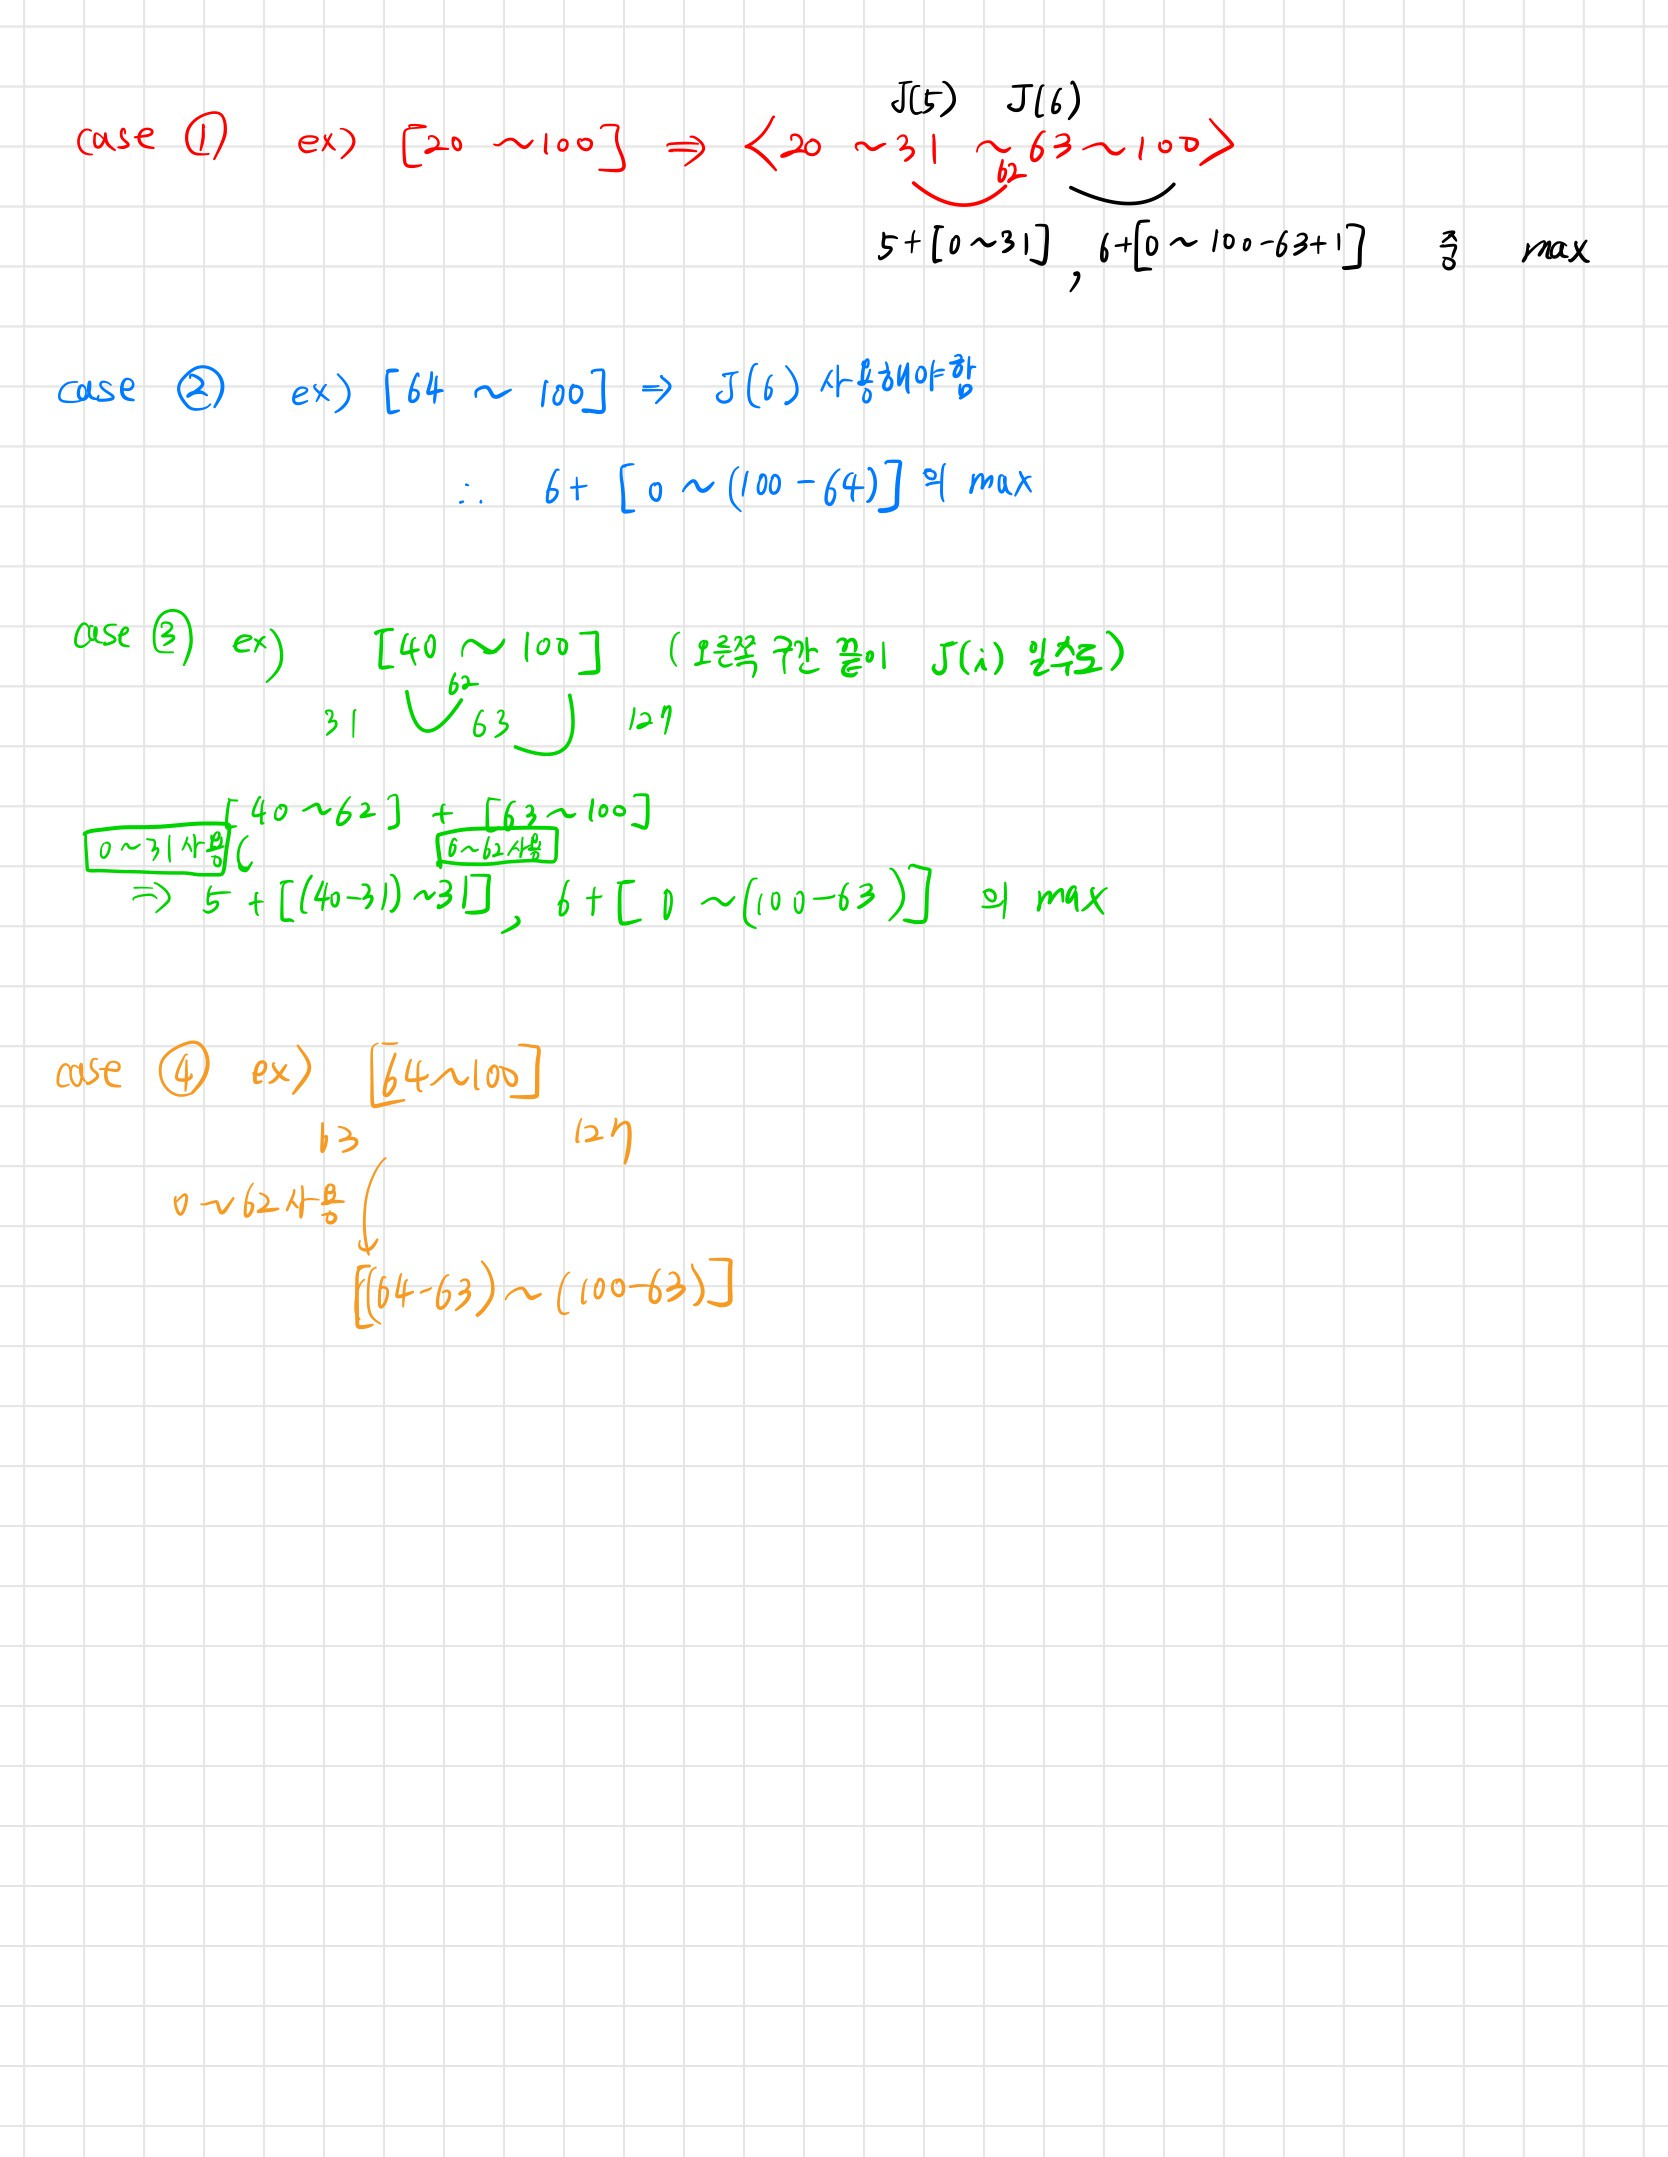 J(5) J(6)
case ① ex) [20 ~100] ⇒ <20 ~31 ~63~100>
62
5+[0~31] , 6+[0~100-63+1] 중 max
case ② ex) [64 ~ 100] ⇒ J(6) 사용해야함
∴ 6+ [0~(100-64)] 의 max
case ③ ex) [40 ~100] (오른쪽 구간 끝이 J(i) 일수도)
62
31 63 127
[40~62] + [63~100]
0~31사용 0~62사용
⇒ 5+[(40-31)~31] , 6+[0 ~(100-63)] 의 max
case ④ ex) [64~100]
63 127
0~62사용
[(64-63)~(100-63)]